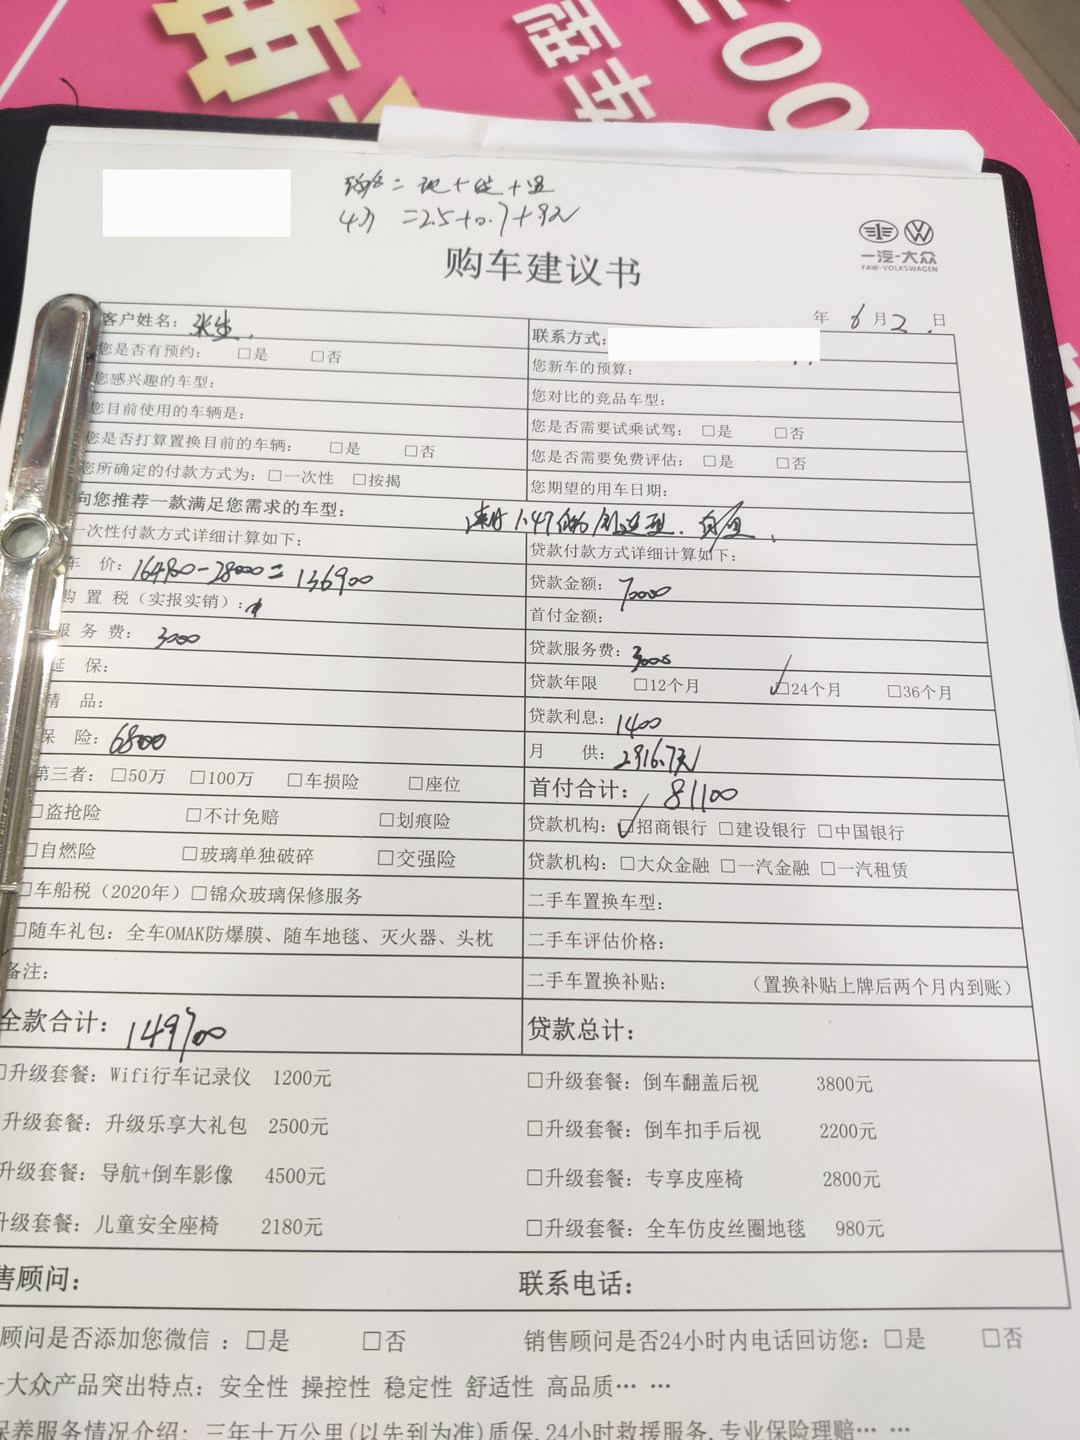 型
车
00
4万 =2.5+0.7+92
购车建议书
一汽-大众
FAW-VOLKSWAGEN
年 6月2日
客户姓名：张生
联系方式：
您是否有预约： □是 □否
您新车的预算：
您感兴趣的车型：
您对比的竞品车型：
您目前使用的车辆是：
您是否需要试乘试驾： □是 □否
您是否打算置换目前的车辆： □是 □否
您是否需要免费评估： □是 □否
您所确定的付款方式为：□一次性 □按揭
您期望的用车日期：
向您推荐一款满足您需求的车型：
速腾 1.4T 白色
一次性付款方式详细计算如下：
贷款付款方式详细计算如下：
车 价：164900-28000=136900
贷款金额：70000
购 置 税（实报实销）：
首付金额：
服 务 费：3000
贷款服务费：3000
延 保：
贷款年限 □12个月 ☑24个月 □36个月
精 品：
贷款利息：1400
保 险：6800
月 供：2916.7元
第三者：□50万 □100万 □车损险 □座位
首付合计：81100
□盗抢险 □不计免赔 □划痕险
贷款机构：☑招商银行 □建设银行 □中国银行
□自燃险 □玻璃单独破碎 □交强险
贷款机构：□大众金融 □一汽金融 □一汽租赁
□车船税（2020年）□锦众玻璃保修服务
二手车置换车型：
□随车礼包：全车OMAK防爆膜、随车地毯、灭火器、头枕
二手车评估价格：
备注：
二手车置换补贴： （置换补贴上牌后两个月内到账）
全款合计：149700
贷款总计：
□升级套餐：Wifi行车记录仪 1200元
□升级套餐：倒车翻盖后视 3800元
升级套餐：升级乐享大礼包 2500元
□升级套餐：倒车扣手后视 2200元
升级套餐：导航+倒车影像 4500元
□升级套餐：专享皮座椅 2800元
升级套餐：儿童安全座椅 2180元
□升级套餐：全车仿皮丝圈地毯 980元
售顾问：
联系电话：
顾问是否添加您微信 ：□是 □否
销售顾问是否24小时内电话回访您：□是 □否
-大众产品突出特点：安全性 操控性 稳定性 舒适性 高品质… …
保养服务情况介绍：三年十万公里(以先到为准)质保,24小时救援服务,专业保险理赔… …